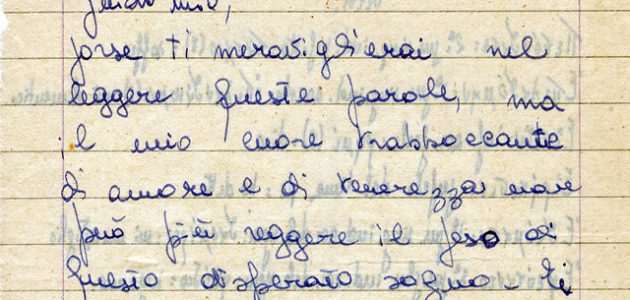 mio,
forse ti meraviglierai nel
leggere queste parole, ma
il mio cuore traboccante
di amore e di tenerezza non
può più reggere il peso di
questo disperato sogno. Ti